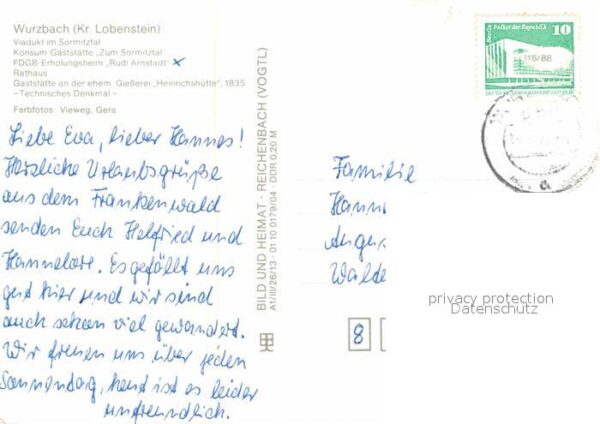 Wurzbach (Kr. Lobenstein)
Viadukt im Sormitztal
Konsum-Gaststätte „Zum Sormitztal“
FDGB-Erholungsheim „Rudi Arnstadt“ x
Rathaus
Gaststätte an der ehem. Gießerei „Heinrichshütte“, 1835
–Technisches Denkmal–
Farbfotos Vieweg, Gera
Liebe Eva, lieber Hannes!
Herzliche Urlaubsgrüße
aus dem Frankenwald
senden Euch Helfried und
Hannelore. Es gefällt uns
gut hier und wir sind
auch schon viel gewandert.
Wir freuen uns über jeden
Sonnentag, heut ist es leider
unfreundlich.
BILD UND HEIMAT · REICHENBACH (VOGTL)
A1/III/26/13 · 01 10 0179/04 · DDR 0,20 M
Berlin Palast der Republik
10
DEUTSCHE DEMOKRATISCHE REPUBLIK
Familie
Hann
Walde
8
privacy protection
Datenschutz